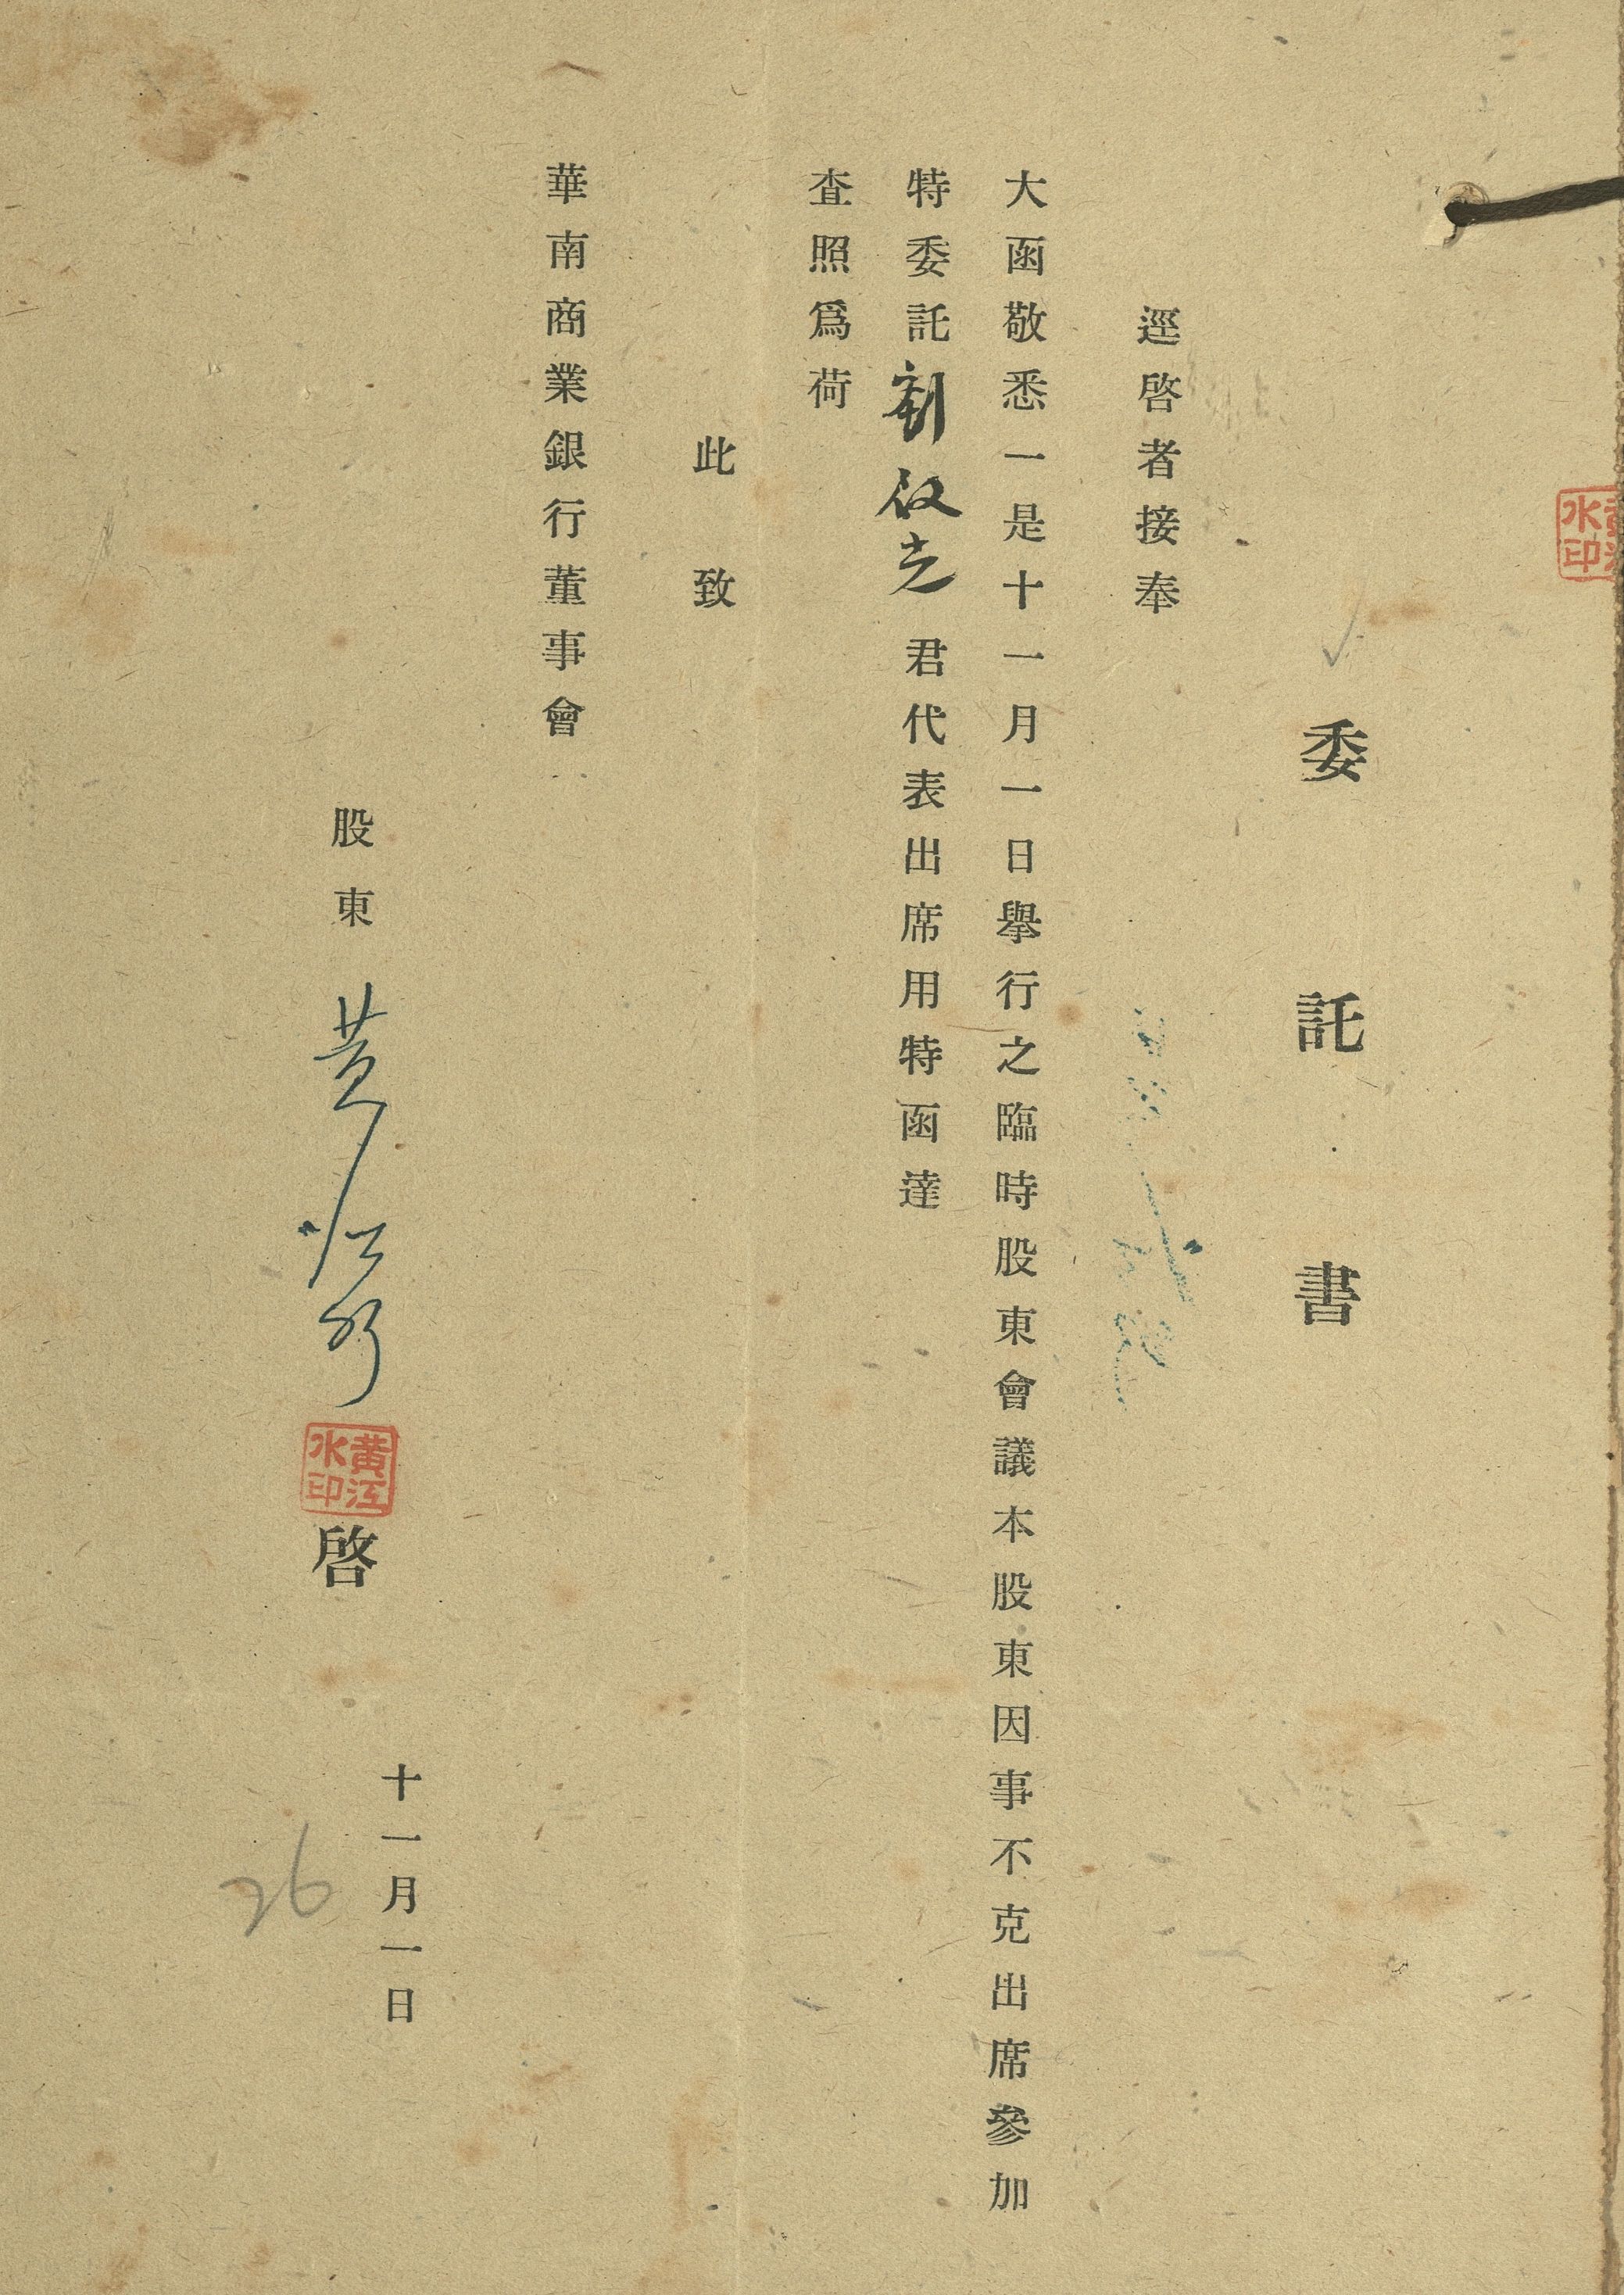 黃江水印
委託書
逕啓者接奉
大函敬悉一是十一月一日舉行之臨時股東會議本股東因事不克出席參加
特委託劉啟光君代表出席用特函達
查照爲荷
此致
華南商業銀行董事會
股東 黃江水 黃江水印 啓
十一月一日
26